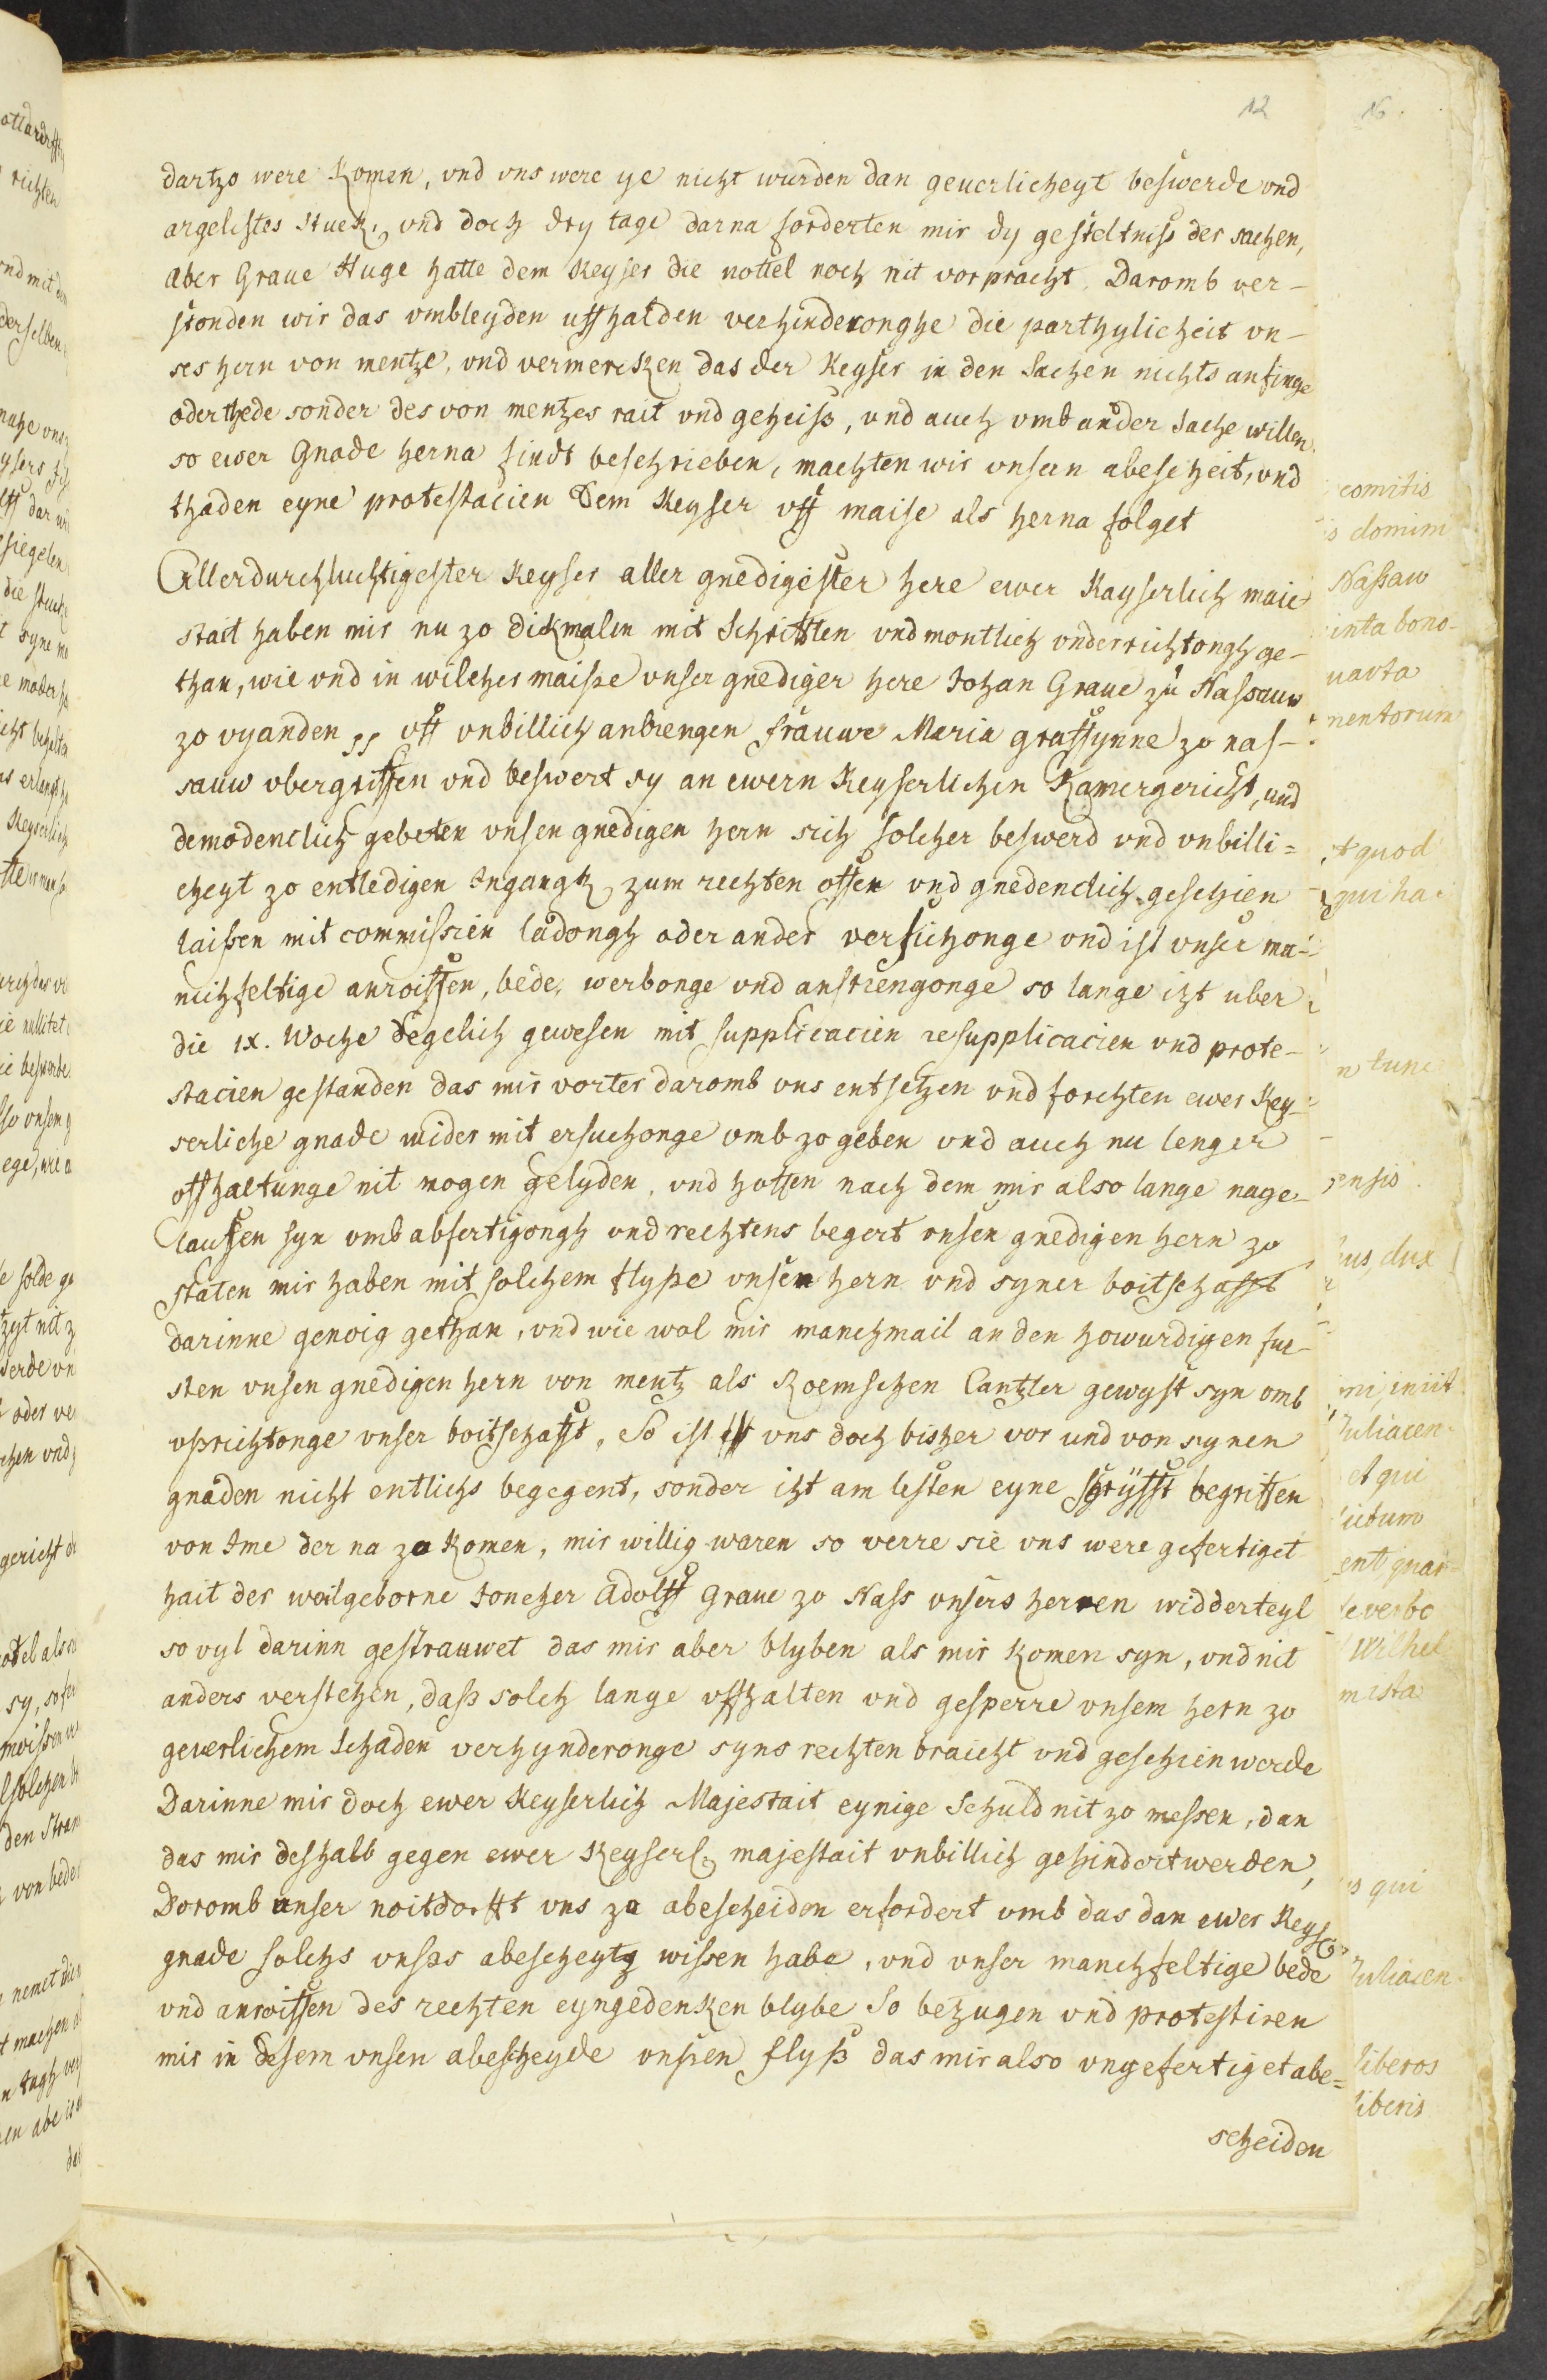 12
dartzo were komen, vnd vns were ye nicht wurden dan geuerlicheyt beswerde vnd
argelistes stuck, vnd doch dry tage darna forderten mir dy gesteltniß der sachen,
aber Graue Huge hatte dem Keyser die nottel noch nit vorpracht. Daromb ver-
stonden wir das ombleyden uffhalden verhinderonghe die parthylicheit vn-
ses hern von mentze, vnd vermercken das der Keyser in den Sachen nichts anfinge
oder thede sonder des von mentzes rait vnd geheiß, vnd auch vmb ander Sache willen
so ewer Gnade herna findt beschrieben, machten wir vnsern abescheit, vnd
thaden eyne protestacien Dem Keyser vff maise als herna folget
Allerdurchluchtigester Keyser aller gnedigester here ewer Kayserlich maie
stait haben mir nu zo dickmalen mit Schrifften vnd montlich vnderrichtongh ge-
than, wie vnd in wilcher maiße vnser gnediger here Johan Graue zu Nassauw
zo vyanden pp vff vnbillich anbrengen frauwe Maria graffynne zo nas-
sauw vbergriffen vnd beswert sy an ewern Keyserlichen Kamergericht, und
demodenclich gebeten vnsen gnedigen hern sich solcher beswerd vnd vnbilli=
cheyt zo entledigen Ingangk zum rechten offen vnd gnedenclich geschien
laissen mit commissien ladongh oder ander versichonge vnd ist vnser ma-
nichfeltige anroiffen, bede, werbonge vnd anstrengonge so lange itzt uber
die IX. Woche degelich gewesen mit supplicacien resupplicacien vnd prote-
stacien gestanden das mir vorter daromb vns entsetzen vnd forchten ewer Key-
serliche gnade wider mit ersuchonge vmb zo geben vnd auch nu lenger
offhaltunge nit mogen gelyden, vnd hoffen nach dem mir also lange nage-
lauffen syn vmb abfertigongh vnd rechtens begert vnsen gnedigen hern zo
staten mir haben mit solchem flysse vnsem hern vnd syner boitschafft
darinne genoig gethan, vnd wie wol mir manchmail an den howurdigen fur-
sten vnsen gnedigen hern von mentz als Roemschen Cantzler gewyst syn omb
vßrichtonge vnser boitschafft, So ist vns doch bisher vor und von synen
gnaden nicht entlichs begegent, sonder itzt am lesten eyne schryfft begriffen
von Ime der na zo komen, mir willig waren so verre sie vns were gefertiget
hait der wailgeborne Joncher Adolff Graue zo Nass vnsers herren widderteyl
so vyl darinn gestrauwet das mir aber blyben als mir komen syn, vnd nit
anders verstehen, daß solch lange vffhalten vnd gesperre vnsem hern zo
geuerlichem Schaden verhynderonge syns rechten braicht vnd geschien werde
Darinne mir doch ewer Keyserlich Majestait eynige Schuld nit zo messen, dan
das mir deshalb gegen ewer Keyserl. majestait vnbillich gehindert werden,
Doromb vnser noitdorfft vns zo abescheiden erfordert vmb das dan ewer Keys
gnade solchs vnsers abescheytz wissen habe, vnd vnser manchfeltige bede
vnd anroiffen des rechten eyngedenken blybe So bezugen vnd protestiren
mir in desem vnsen abescheyde vnsen flyß das mir also vngefertiget abe=
scheiden
16.
comitis
domini
Nassaw
inta bono-
uarta
mentorum
et quod
qui ha
tunc
ensis
dux
iniit
Juliacen
et qui
ent quar-
verbo
Wilhel
mista
qui
Juliacen
liberos
liberis